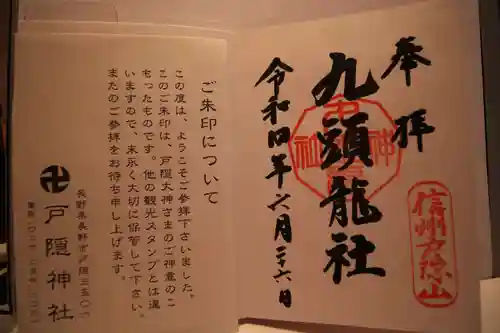 奉拝
九頭龍社
令和四年六月二十六日
信州戸隠山
ご朱印について
この度は、ようこそご参拝下さいました。
このご朱印は、戸隠大神さまのご神意のこ
もったものです。他の観光スタンプとは違
いますので、末永く大切に保管して下さい。
またのご参拝をお待ち申し上げます。
卍戸隠神社